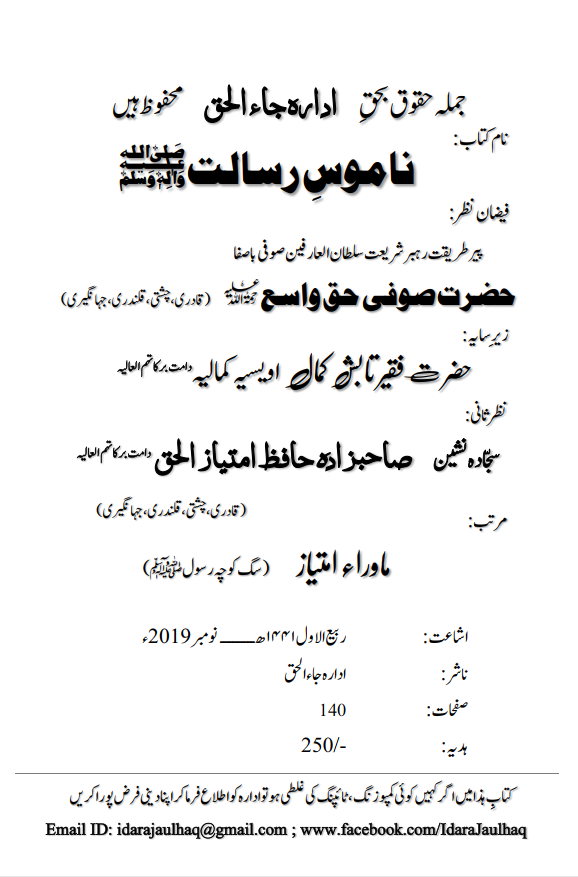 جملہ حقوق بحقِ ادارہ جاء الحق محفوظ ہیں
نام کتاب:
ناموسِ رسالت ﷺ
فیضان نظر:
پیر طریقت رہبر شریعت سلطان العارفین صوفی باصفا
حضرت صوفی حق واسع رحمۃ اللہ علیہ (قادری، چشتی، قلندری، جہانگیری)
زیرِ سایہ:
حضرت فقیر تابش کمال اویسیہ کمالیہ دامت برکاتہم العالیہ
نظر ثانی:
سجّادہ نشین صاحبزادہ حافظ امتیاز الحق دامت برکاتہم العالیہ
(قادری، چشتی، قلندری، جہانگیری)
مرتب:
ماوراء امتیاز (سگ کوچہ رسول ﷺ)
اشاعت: ربیع الاول ۱۴۴۱ھ ـــــ نومبر 2019ء
ناشر: ادارہ جاء الحق
صفحات: 140
ہدیہ: 250/-
کتابِ ہذا میں اگر کہیں کوئی کمپوزنگ، ٹائپنگ کی غلطی ہو تو ادارہ کو اطلاع فرما کر اپنا دینی فرض پورا کریں
Email ID: idarajaulhaq@gmail.com ; www.facebook.com/IdaraJaulhaq